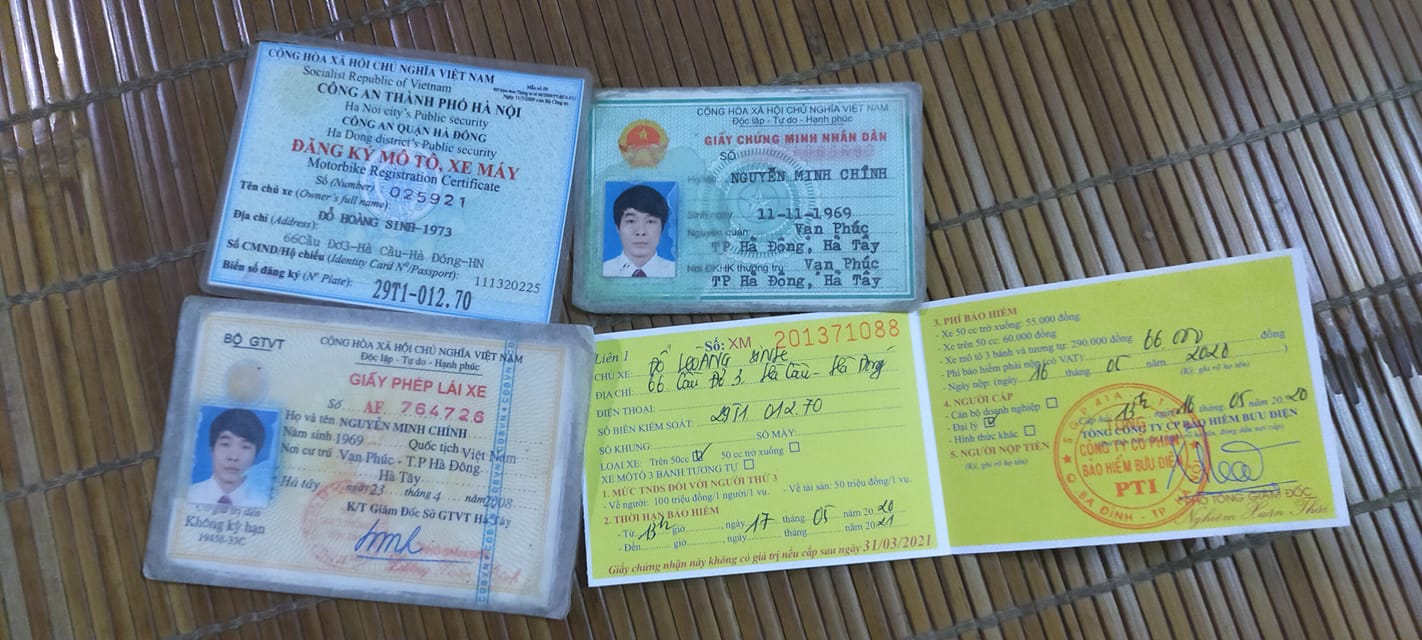 CỘNG HÒA XÃ HỘI CHỦ NGHĨA VIỆT NAM
Socialist Republic of Vietnam
CÔNG AN THÀNH PHỐ HÀ NỘI
Ha Noi city's Public security
CÔNG AN QUẬN HÀ ĐÔNG
Ha Dong district's Public security
ĐĂNG KÝ MÔ TÔ, XE MÁY
Motorbike Registration Certificate
Số (Number): 025921
Tên chủ xe (Owner's full name):
ĐỖ HOÀNG SINH-1973
Địa chỉ (Address):
66Cầu Đơ3-Hà Cầu-Hà Đông-HN
Số CMND/Hộ chiếu (Identity Card Nº/Passport): 111320225
Biển số đăng ký (Nº Plate):
29T1-012.70
CỘNG HÒA XÃ HỘI CHỦ NGHĨA VIỆT NAM
Độc lập - Tự do - Hạnh phúc
GIẤY CHỨNG MINH NHÂN DÂN
SỐ
NGUYỄN MINH CHÍNH
Sinh ngày 11-11-1969
Nguyên quán: Vạn Phúc
TP Hà Đông, Hà Tây
Nơi ĐKHK thường trú Vạn Phúc
TP Hà Đông, Hà Tây
BỘ GTVT
CỘNG HÒA XÃ HỘI CHỦ NGHĨA VIỆT NAM
Độc lập - Tự do - Hạnh phúc
GIẤY PHÉP LÁI XE
Số AF 764726
Họ và tên NGUYỄN MINH CHÍNH
Năm sinh 1969 Quốc tịch Việt Nam
Nơi cư trú Vạn Phúc - T.P Hà Đông
Hà Tây
Hà tây ngày 23 tháng 4 năm 2008
K/T Giám Đốc Sở GTVT Hà Tây
Có giá trị đến
Không kỳ hạn
Liên 1
Số: XM 201371088
CHỦ XE: ĐỖ HOÀNG SINH
ĐỊA CHỈ: 66 Cầu Đơ 3. Hà Cầu - Hà Đông
ĐIỆN THOẠI:
SỐ BIỂN KIỂM SOÁT: 29T1 012.70
SỐ KHUNG: SỐ MÁY:
LOẠI XE: Trên 50cc 50 cc trở xuống
XE MÔTÔ 3 BÁNH TƯƠNG TỰ
1. MỨC TNDS ĐỐI VỚI NGƯỜI THỨ 3
- Về người: 100 triệu đồng/1 người/1 vụ. - Về tài sản: 50 triệu đồng/1 vụ.
2. THỜI HẠN BẢO HIỂM
- Từ 13h giờ, ngày 17 tháng 05 năm 2020
- Đến giờ, ngày tháng năm 2021
Giấy chứng nhận này không có giá trị nếu cấp sau ngày 31/03/2021
3. PHÍ BẢO HIỂM
- Xe 50 cc trở xuống: 55.000 đồng
- Xe trên 50cc: 60.000 đồng
- Xe mô tô 3 bánh và tương tự: 290.000 đồng
- Phí bảo hiểm phải nộp (có VAT): 66 000 đồng
- Ngày nộp: (ngày 16 tháng 05 năm 2020)
(Ký, ghi rõ họ tên)
4. NGƯỜI CẤP
- Cán bộ doanh nghiệp
- Đại lý
- Hình thức khác
5. NGƯỜI NỘP TIỀN
(Ký, ghi rõ họ tên)
Cấp hồi 13h ngày 16 tháng 05 năm 2020
TỔNG CÔNG TY CP BẢO HIỂM BƯU ĐIỆN
CÔNG TY CỔ PHẦN
BẢO HIỂM BƯU ĐIỆN
PTI
BA ĐÌNH - TP
PHÓ TỔNG GIÁM ĐỐC
Nghiêm Xuân Thái